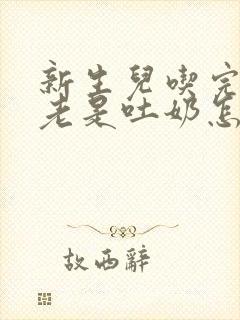 新生兒喫完
老是吐奶怎
故西辭